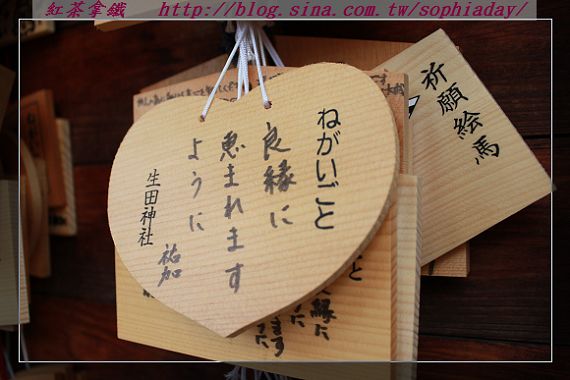 紅茶拿鐵 http://blog.sina.com.tw/sophiaday/
ねがいごと
良縁に
恵まれます
ように
生田神社
祐加
祈願絵馬